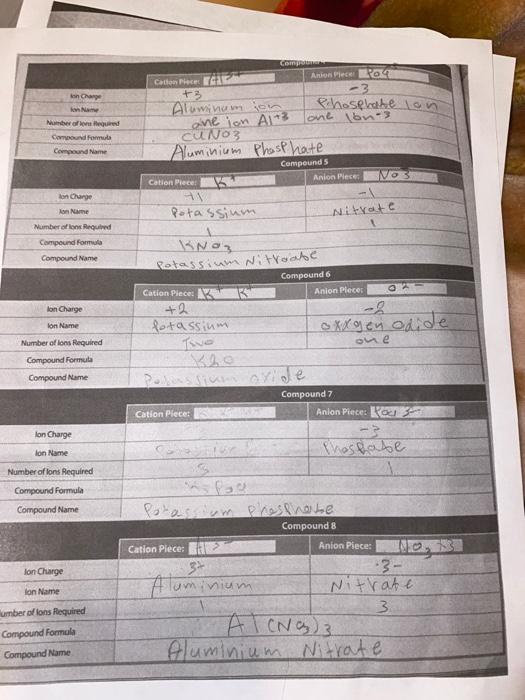 Compound
Cation Piece: Al 3+ Anion Piece: Po4
Ion Charge +3 -3
Ion Name Aluminum ion Phosphate ion
Number of Ions Required one ion Al+3 one Ion-3
Compound Formula CUNO3
Compound Name Aluminium Phosphate
Compound 5
Cation Piece: K+ Anion Piece: No3
Ion Charge +1 -1
Ion Name Potassium Nitrate
Number of Ions Required 1 1
Compound Formula KNO3
Compound Name Potassium Nitroate
Compound 6
Cation Piece: K+ K+ Anion Piece: O2-
Ion Charge +2 -2
Ion Name Potassium oxxgen odide
Number of Ions Required Two one
Compound Formula K2O
Compound Name Potassium oxide
Compound 7
Cation Piece: Anion Piece:
Ion Charge -3
Ion Name Phosfate
Number of Ions Required 3 1
Compound Formula
Compound Name Potassium
Compound 8
Cation Piece: Al 3- Anion Piece: No3 x3
Ion Charge 3+ -3-
Ion Name Aluminium Nitrate
umber of Ions Required 1 3
Compound Formula Al(NO3)3
Compound Name Aluminium Nitrate